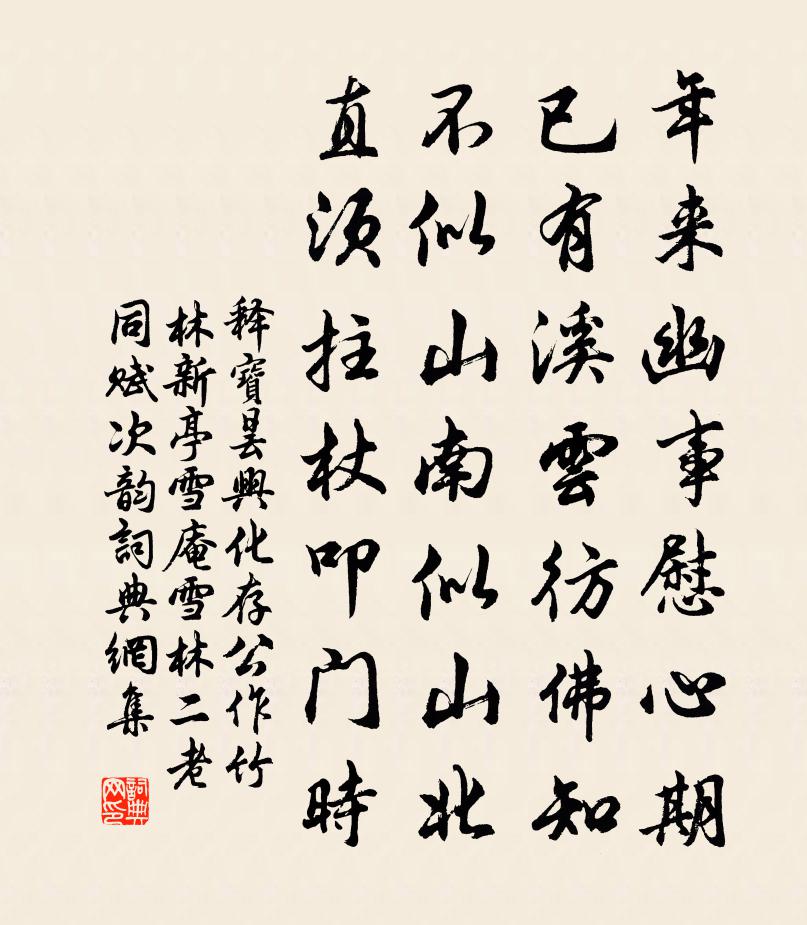 年来幽事慰心期
已有溪雲彷佛知
不似山南似山北
直须拄杖叩门時
释寶曇興化存公作竹
林新亭雪庵雪林二老
同赋次韵詞典網集
詞典网印